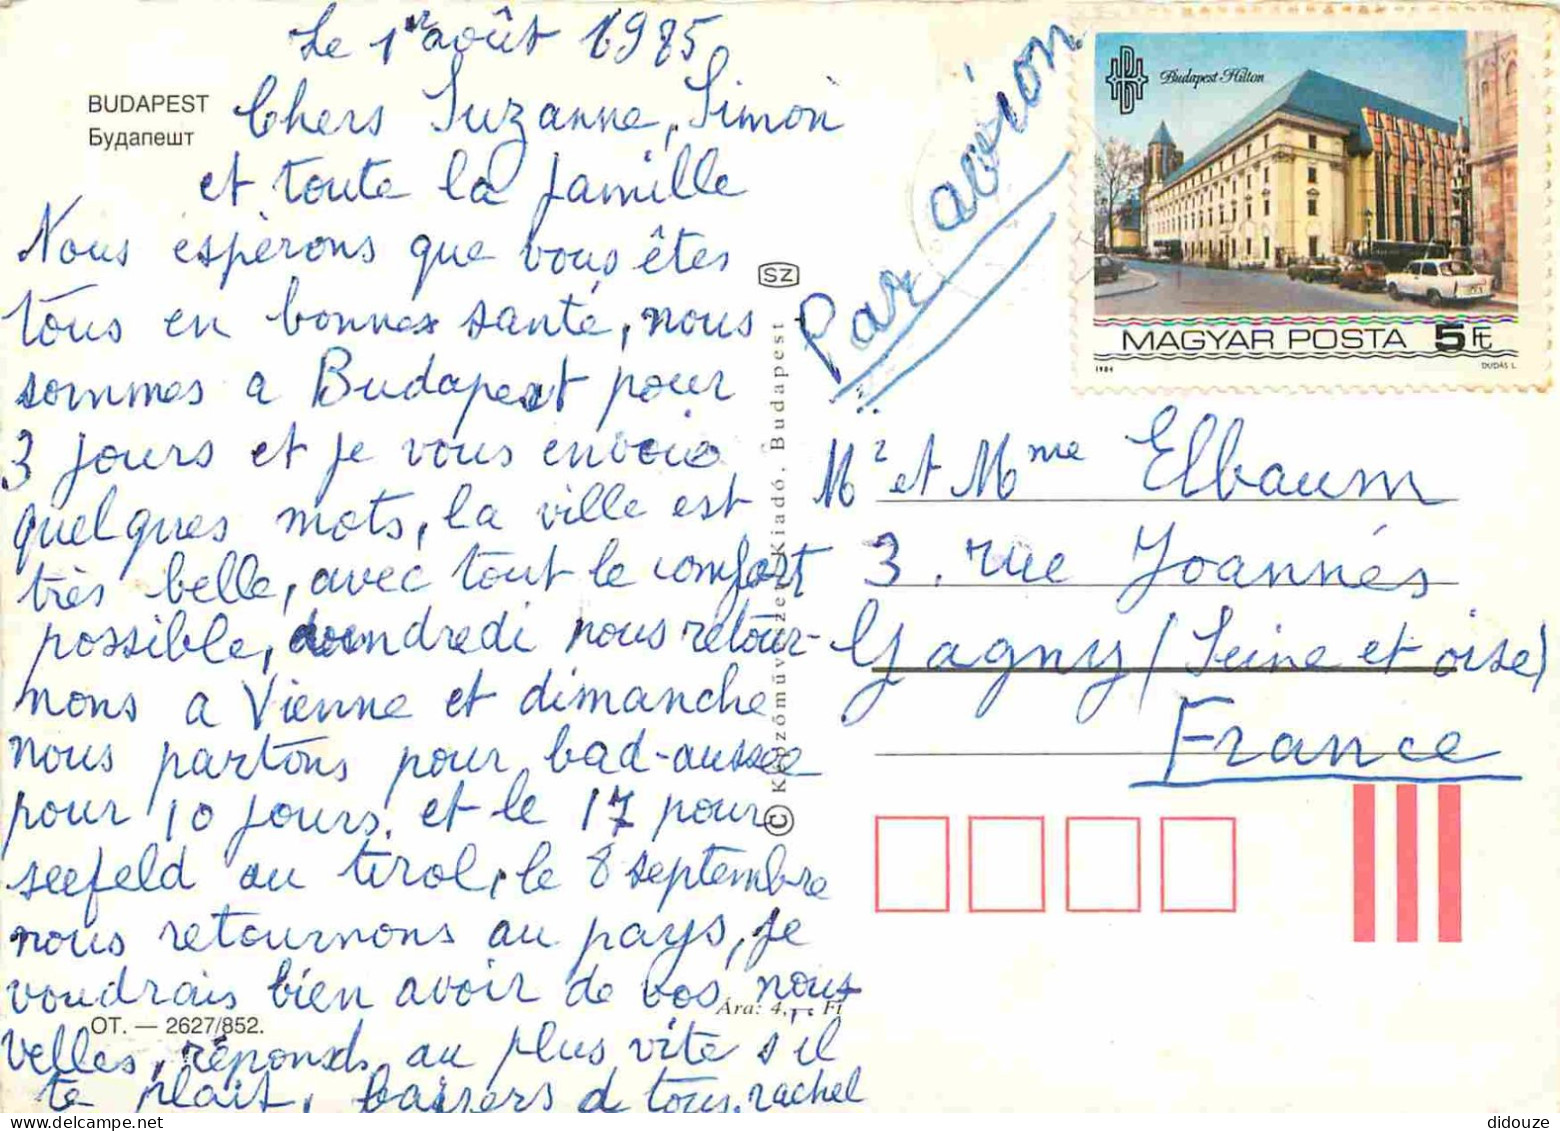 Le 1er août 1985
BUDAPEST
Будапешт
Chers Suzanne, Simon
et toute la famille
Nous espèrons que vous êtes
tous en bonnes santé, nous
sommes a Budapest pour
3 jours et je vous envoie
quelques mots, la ville est
très belle, avec tout le comfort
possible, vendredi nous retour-
nons a Vienne et dimanche
nous partons pour bad-aussee
pour 10 jours, et le 17 pour
seefeld au tirol, le 8 septembre
nous retournons au pays, je
voudrais bien avoir de vos nou-
velles, réponds au plus vite s'il
te plait, baisers d tous, rachel
OT. — 2627/852.
Ára: 4,— Ft
SZ
© Képzőművészeti Kiadó, Budapest
Par avion
Budapest Hilton
MAGYAR POSTA 5 Ft
1984
DUDÁS L.
Mr et Mme Elbaum
3, rue Joannés
Gagny (Seine et oise)
France
didouze